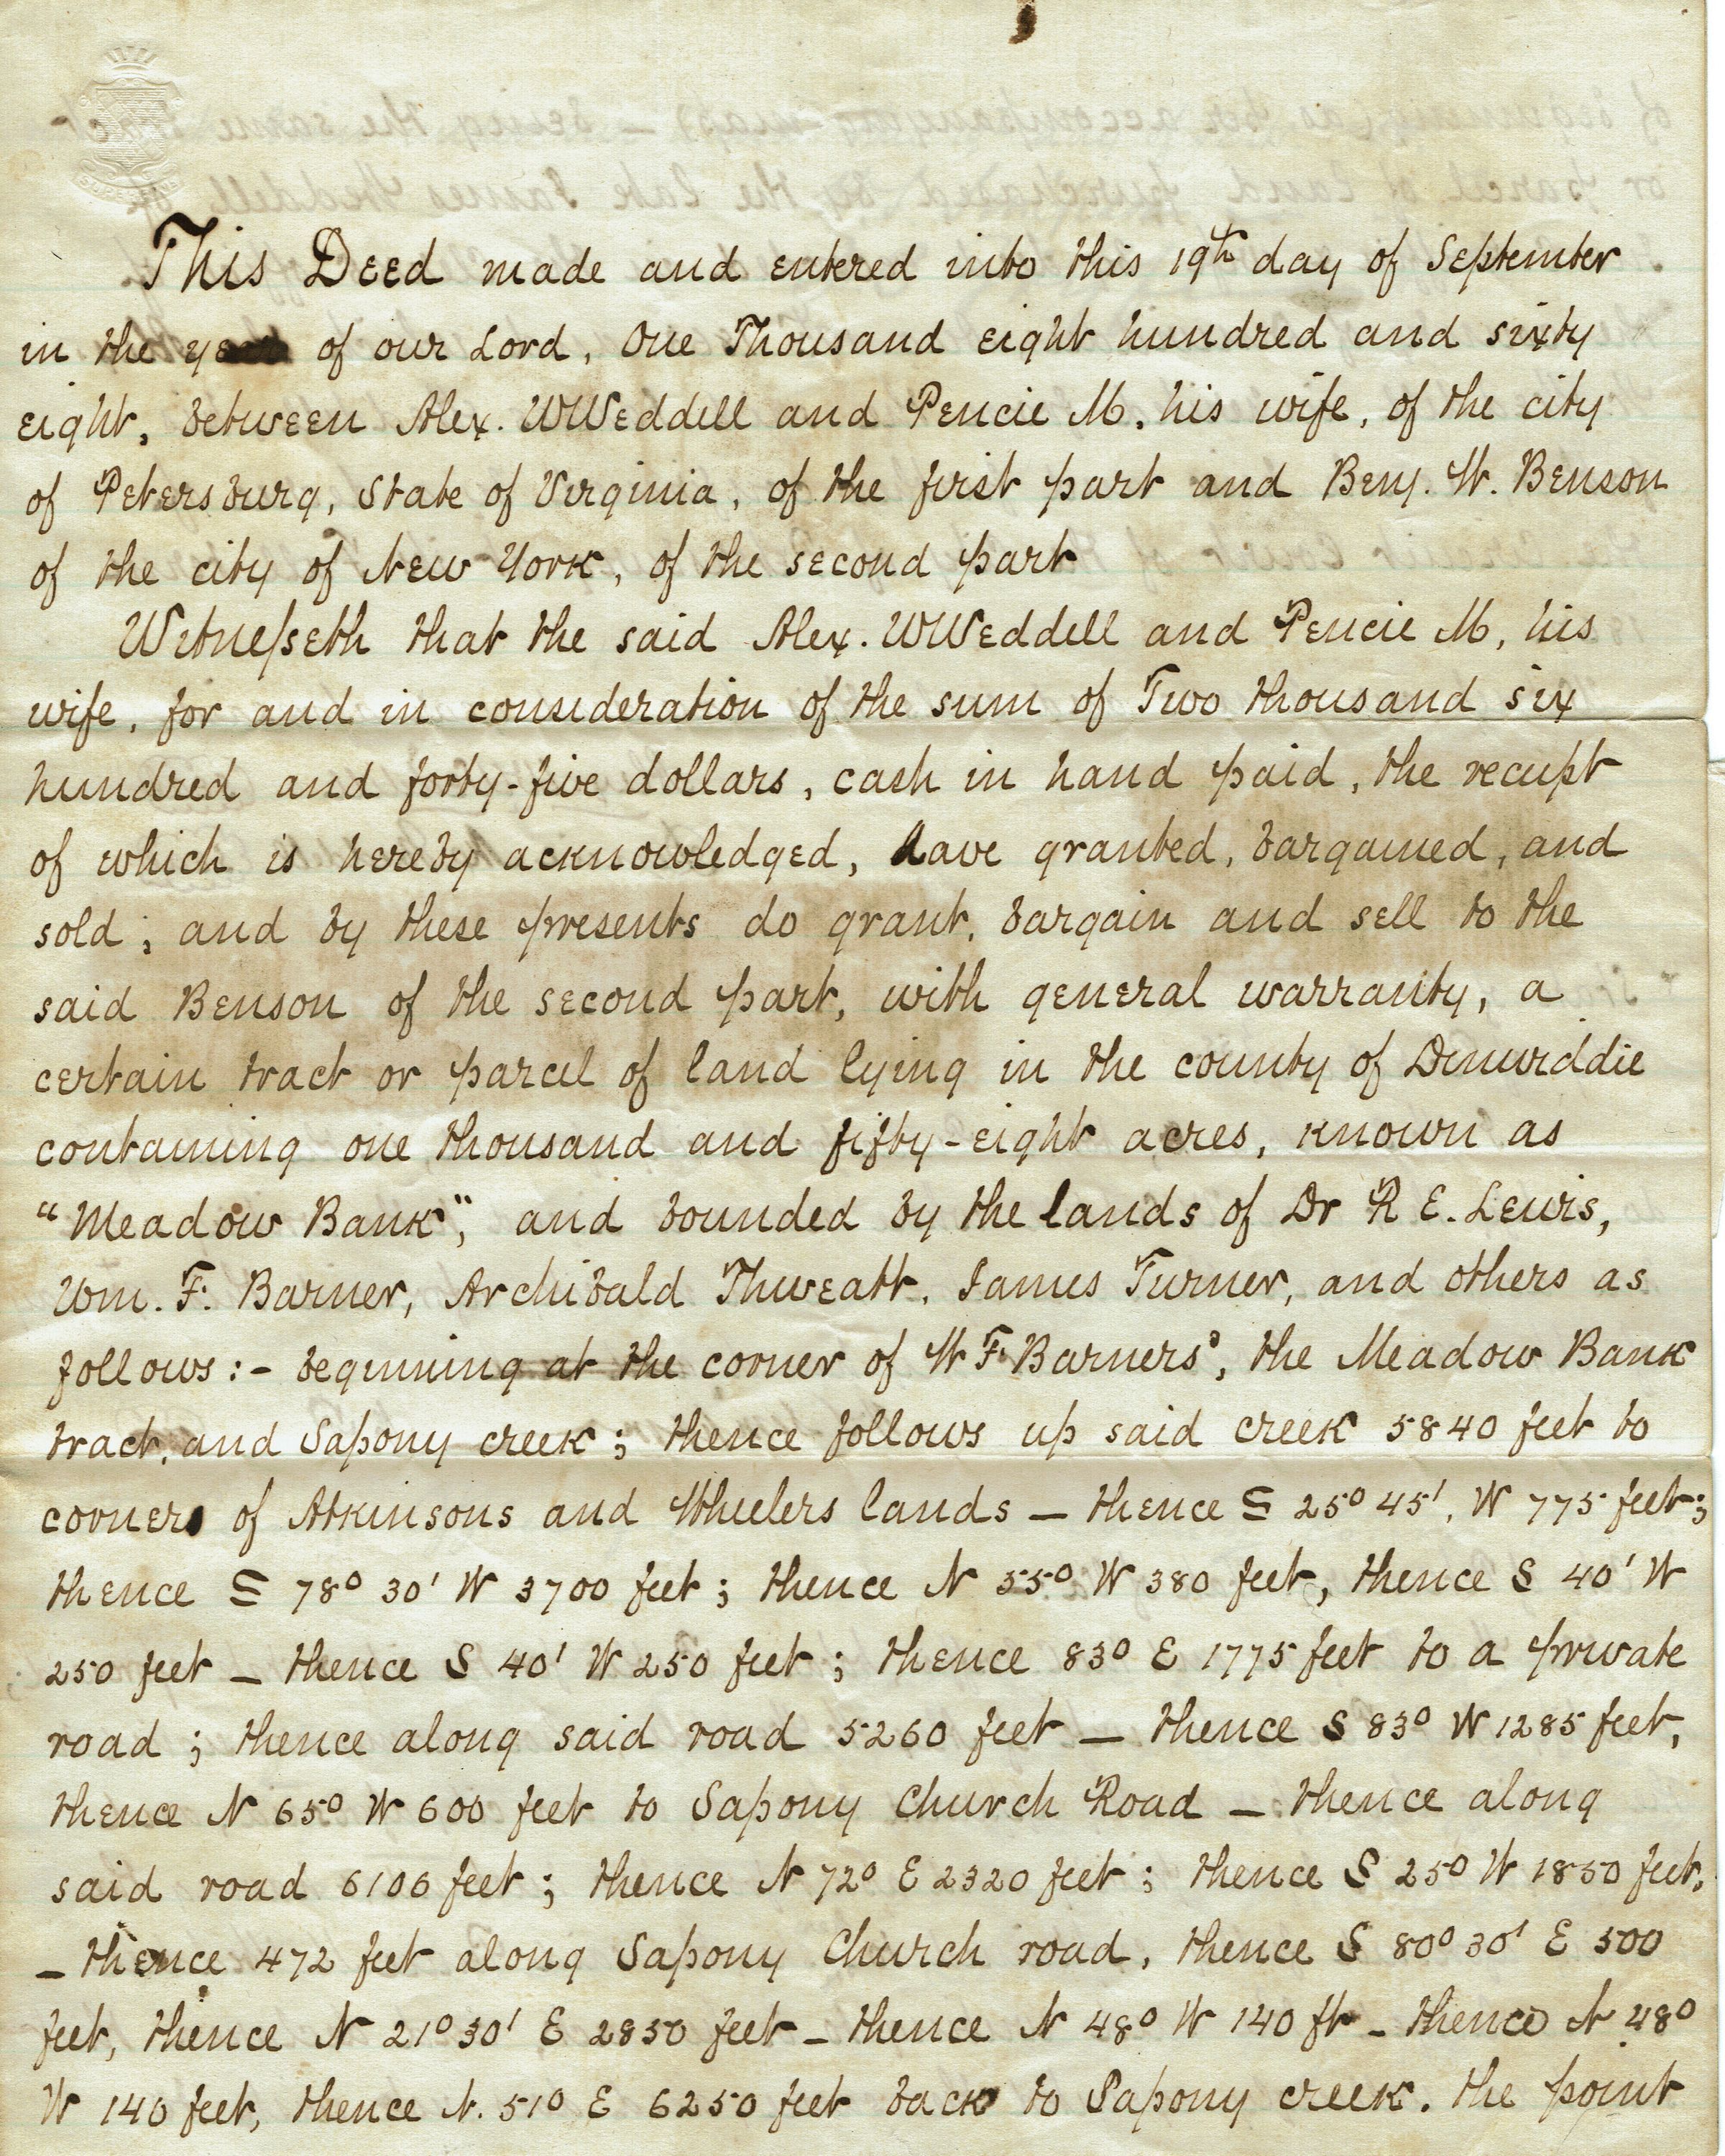 This Deed made and entered into this 19th day of September
in the year of our Lord, One Thousand eight hundred and sixty
eight, between Alex. W Weddell and Pencie M, his wife, of the city
of Petersburg, State of Virginia, of the first part and Benj. W. Benson
of the city of New York, of the second part
Witnesseth that the said Alex. W Weddell and Pencie M, his
wife, for and in consideration of the sum of Two thousand six
hundred and forty-five dollars, cash in hand paid, the receipt
of which is hereby acknowledged, have granted, bargained, and
sold; and by these presents do grant, bargain and sell to the
said Benson of the second part, with general warranty, a
certain tract or parcel of land lying in the county of Dinwiddie
containing one thousand and fifty-eight acres, known as
"Meadow Bank", and bounded by the lands of Dr R E. Lewis,
Wm. F. Barner, Archibald Thweatt, James Turner, and others as
follows:- beginning at the corner of W F. Barners', the Meadow Bank
tract, and Sapony creek; thence follows up said creek 5840 feet to
corner of Atkinsons and Wheelers lands — thence S 25° 45', W 775 feet;
thence S 78° 30' W 3700 feet; thence N 55° W 380 feet, thence S 40' W
250 feet — thence S 40' W 250 feet; thence 83° E 1775 feet to a private
road; thence along said road 5260 feet — thence S 83° W 1285 feet,
thence N 65° W 600 feet to Sapony Church Road — thence along
said road 6106 feet; thence N 72° E 2320 feet; thence S 25° W 1850 feet,
— thence 472 feet along Sapony Church road, thence S 80° 30' E 500
feet, thence N 21° 30' E 2850 feet — thence N 48° W 140 ft — thence N 48°
W 140 feet, thence N. 51° E 6250 feet back to Sapony creek. the point